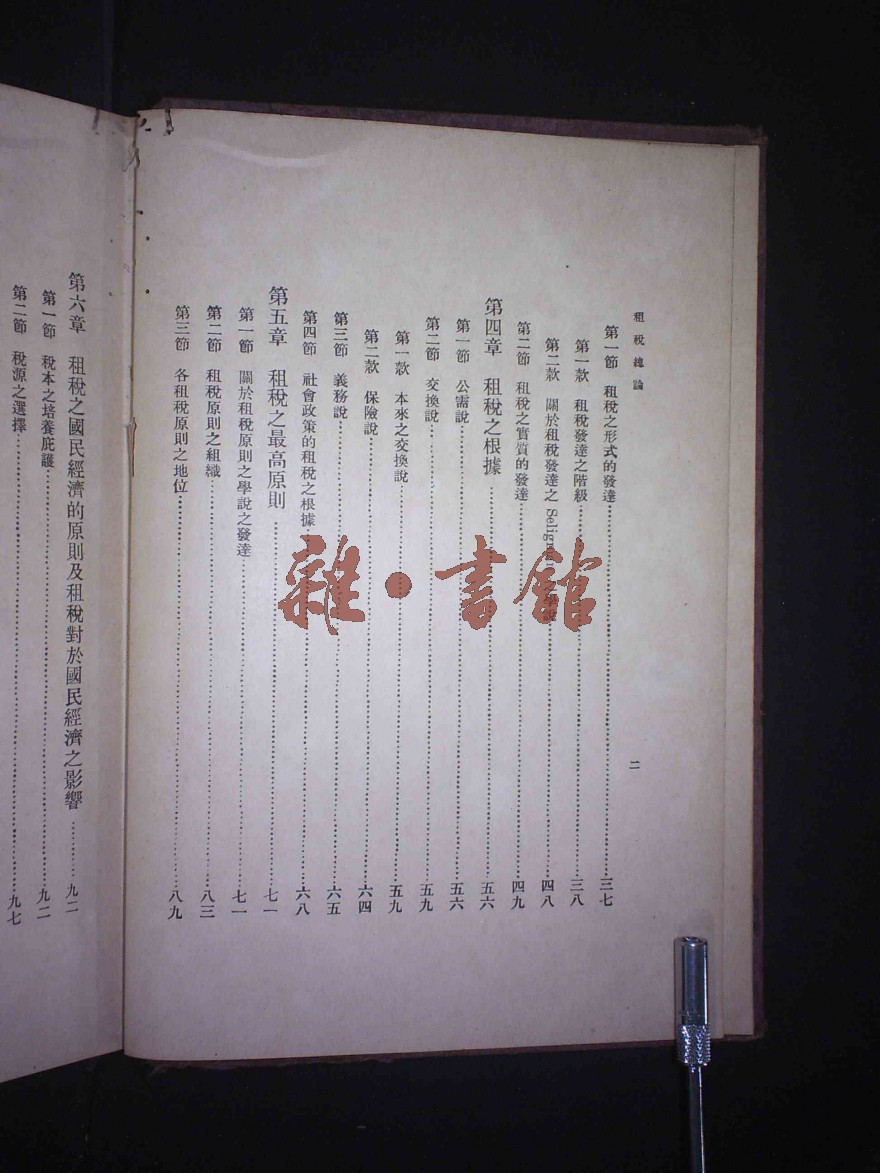 租稅總論
二
第一節 租稅之形式的發達……三七
第一款 租稅發達之階級……三八
第二款 關於租稅發達之 Selig……四八
第二節 租稅之實質的發達……四九
第四章 租稅之根據……五六
第一節 公需說……五六
第二節 交換說……五九
第一款 本來之交換說……五九
第二款 保險說……六四
第三節 義務說……六五
第四節 社會政策的租稅之根據……六八
第五章 租稅之最高原則……七一
第一節 關於租稅原則之學說之發達……七一
第二節 租稅原則之組織……八三
第三節 各租稅原則之地位……八九
第六章 租稅之國民經濟的原則及租稅對於國民經濟之影響……九二
第一節 稅本之培養庇護……九二
第二節 稅源之選擇……九七
雜·書館